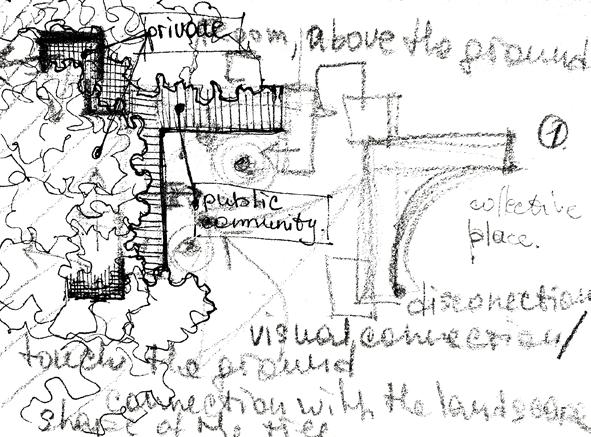 private
om, above the ground
1
public
community.
collective
place.
disconection
visual connection/
touch the ground
connection with the landscape
shape of the tree